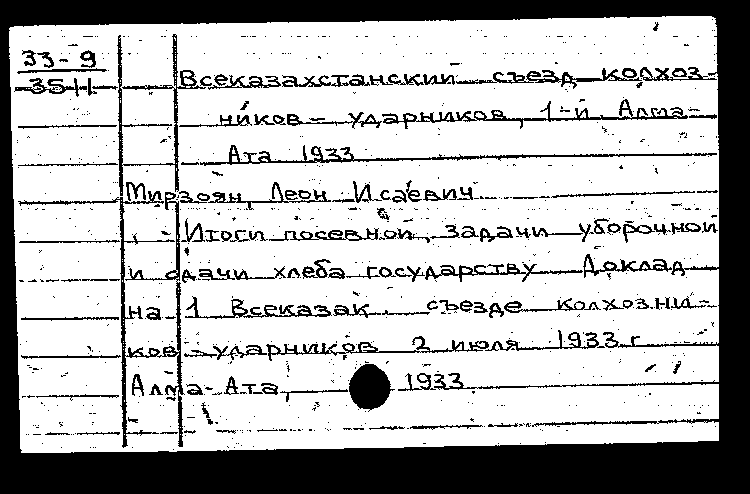 33-9
3511
Всеказахстанский съезд колхоз-
ников - ударников, 1-й. Алма-
Ата 1933
Мирзоян, Леон Исаевич
- Итоги посевной, задачи уборочной
и сдачи хлеба государству Доклад
на 1 Всеказак. съезде колхозни-
ков - ударников 2 июля 1933 г
Алма-Ата, 1933